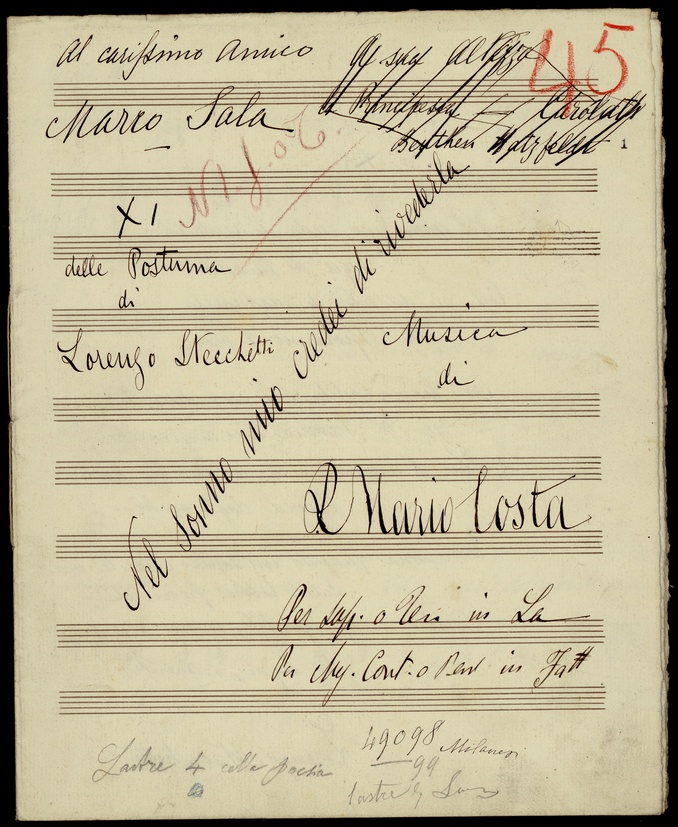 Al carissimo Amico
A sua Altezza
45
Marco Sala
la Principessa Carolath
Beuthen Hatzfeldt
1
XI
delle Postuma
di
Lorenzo Stecchetti
Nel Sonno mio credei di rivederla
Musica
di
P. Mario Costa
Per Sop. o Ten in La
Per My. Cont. o Bar in Fa#
49098 Milanesi
99
Lastre 4 colla poesia
lastre